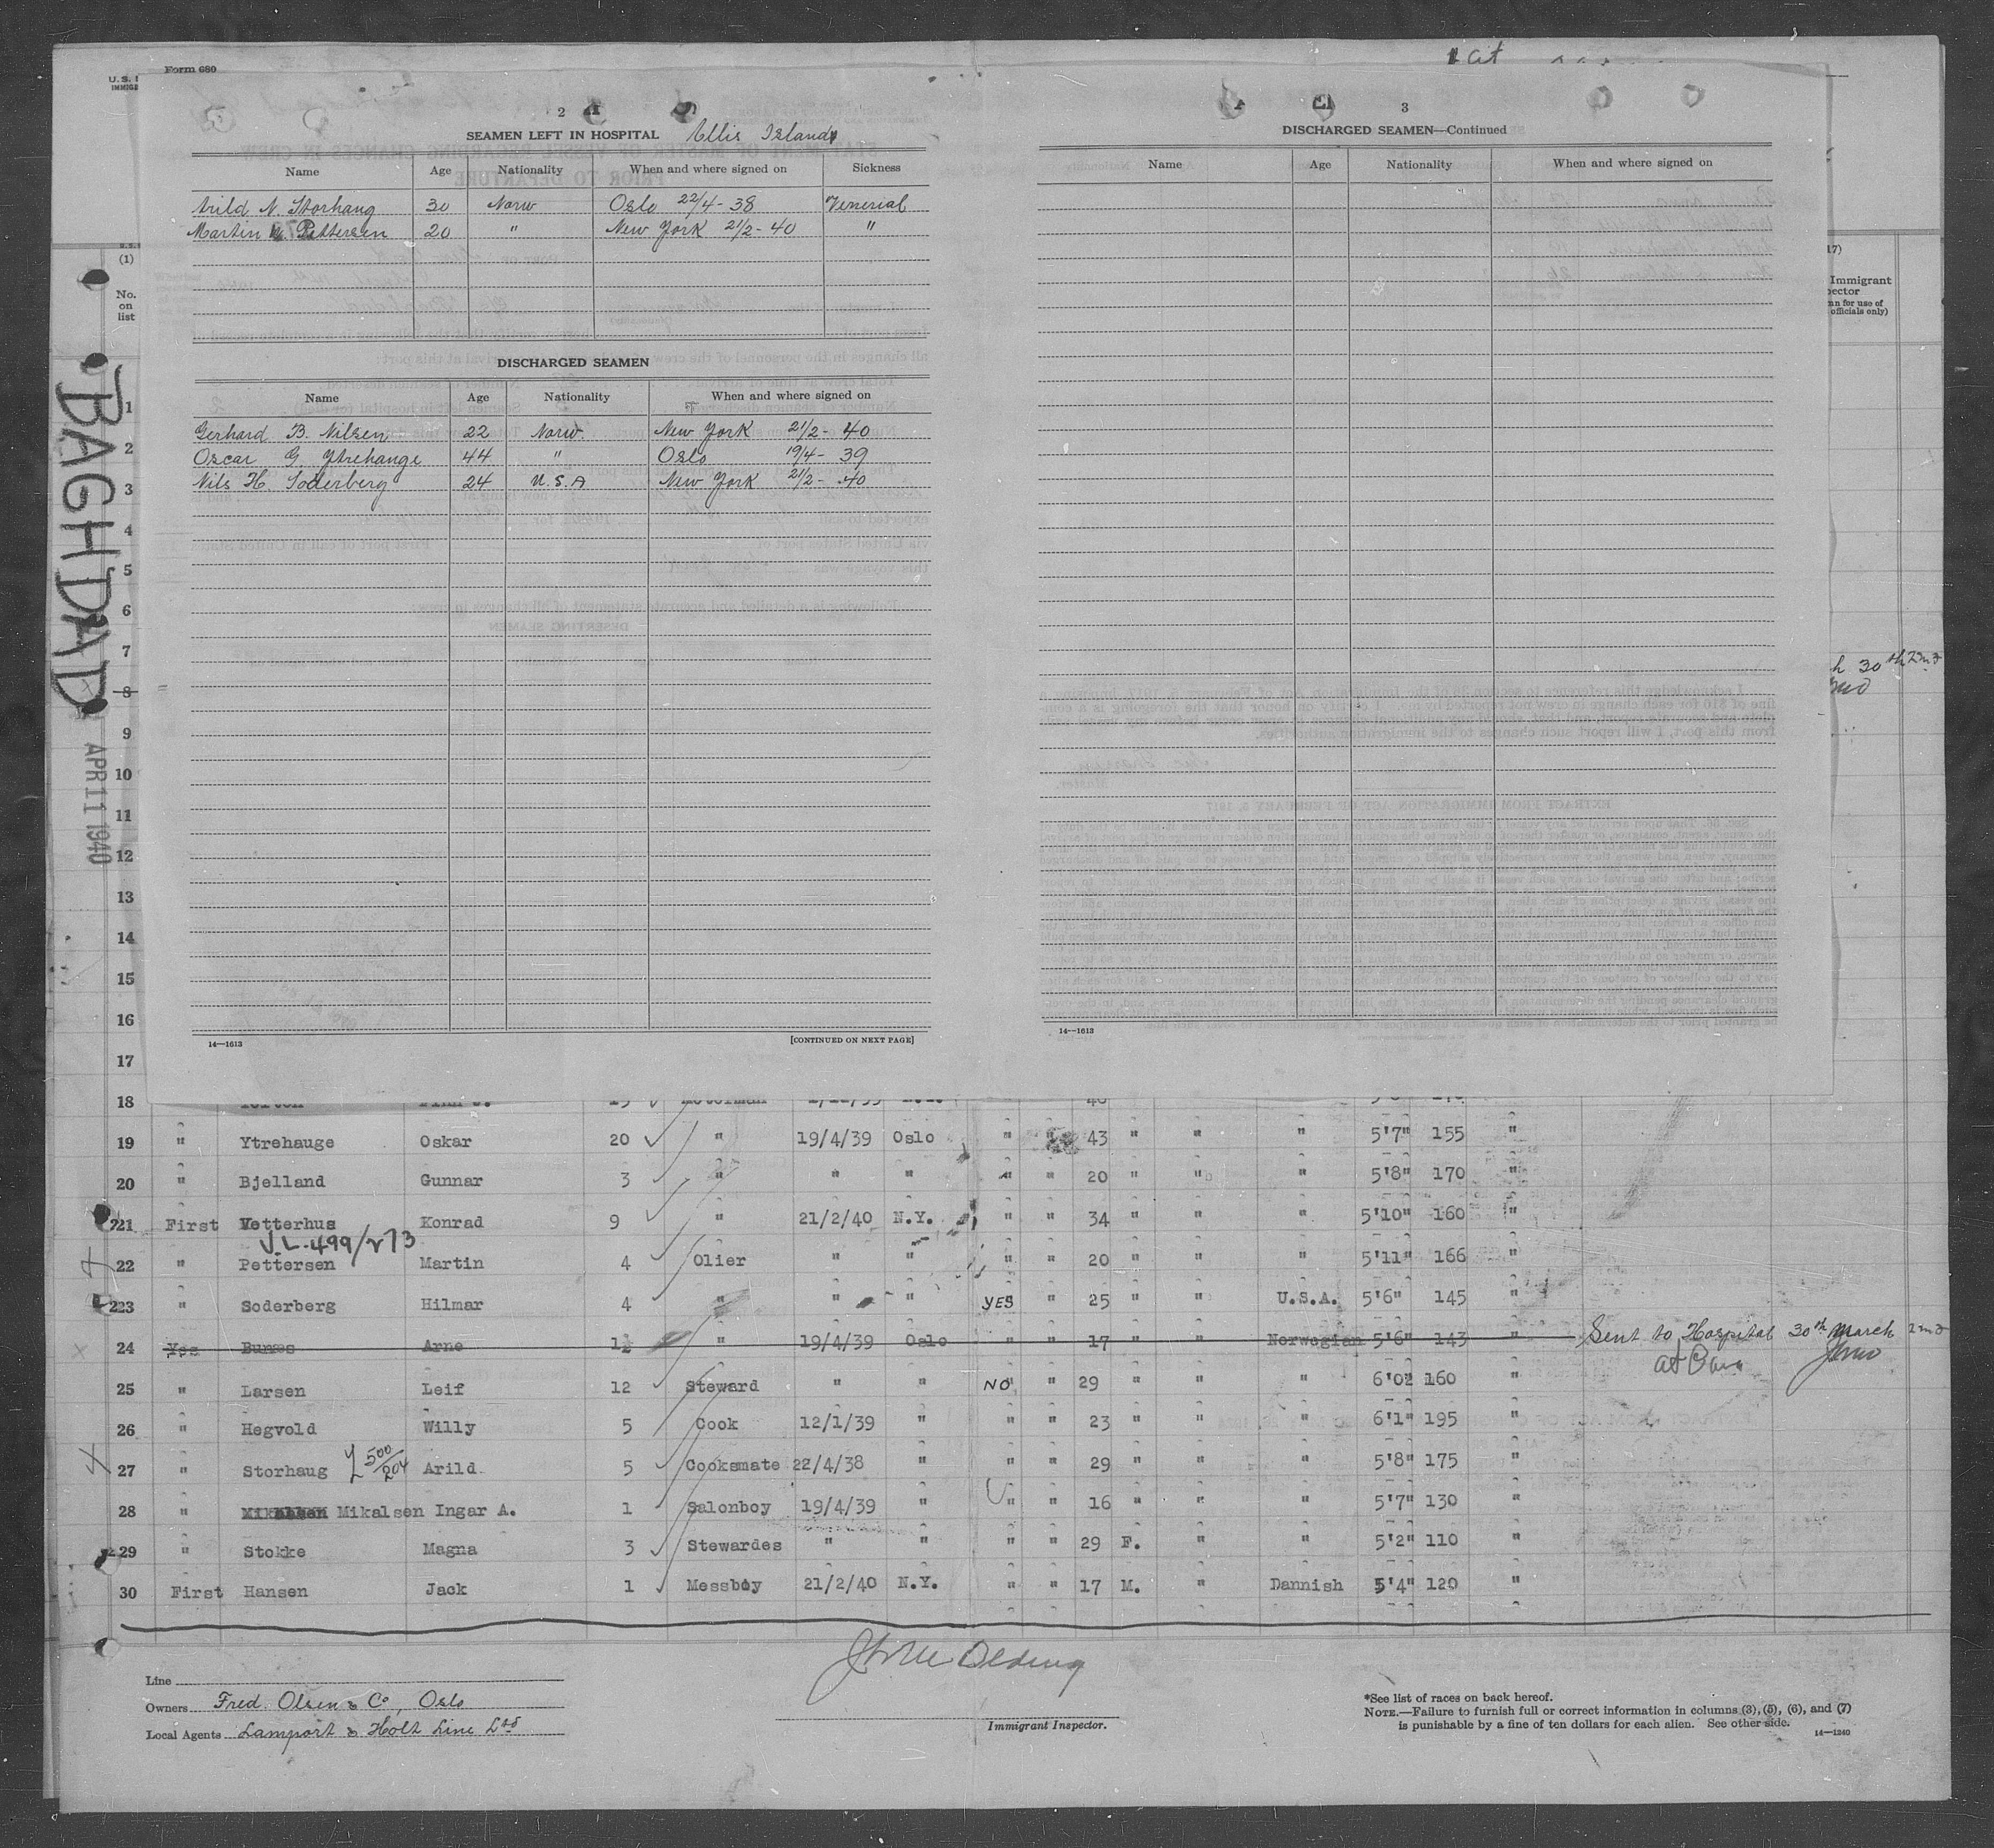 Form 680
U. S.
IMMIG
1 at
2
SEAMEN LEFT IN HOSPITAL Ellis Island
Name Age Nationality When and where signed on Sickness
Arild N. Storhaug 30 Norw Oslo 22/4-38 Venerial
Martin Pettersen 20 " New York 21/2-40 "
DISCHARGED SEAMEN
Name Age Nationality When and where signed on
Gerhard B. Nilsen 22 Norw. New York 21/2-40
Oscar G Ytrehauge 44 " Oslo 19/4-39
Nils H. Soderberg 24 U.S.A New York 21/2-40
14—1613
[CONTINUED ON NEXT PAGE]
3
DISCHARGED SEAMEN—Continued
Name Age Nationality When and where signed on
14—1613
(1)
No.
on
list
17)
Immigrant
pector
officials only)
BAGHDAD
APR 11 1940
h 30th 2nd
1
2
3
4
5
6
7
8
9
10
11
12
13
14
15
16
17
18
19 " Ytrehauge Oskar 20 " 19/4/39 Oslo " " 43 " " " 5'7" 155 "
20 " Bjelland Gunnar 3 " " " " " 20 " " " 5'8" 170 "
21 First Vetterhus Konrad 9 " 21/2/40 N.Y. " " 34 " " " 5'10" 160 "
V.L. 499/273
22 " Pettersen Martin 4 Olier " " " " 20 " " " 5'11" 166 "
23 " Soderberg Hilmar 4 " " " YES " 25 " " U.S.A. 5'6" 145 "
24 Yes Arne " 19/4/39 Oslo " " 17 " " Norwegian 5'6" 143 " Sent to Hospital 30th March 2nd
at
25 " Larsen Leif 12 Steward " " NO " 29 " " " 6'0" 160 "
26 " Hegvold Willy 5 Cook 12/1/39 " " " 23 " " " 6'1" 195 "
27 " Storhaug 500/204 Arild. 5 Cooksmate 22/4/38 " " " 29 " " " 5'8" 175 "
28 " Mikalsen Ingar A. 1 Salonboy 19/4/39 " " " 16 " " " 5'7" 130 "
29 " Stokke Magna 3 Stewardes " " " " 29 F. " " 5'2" 110 "
30 First Hansen Jack 1 Messboy 21/2/40 N.Y. " " 17 M. " Dannish 5'4" 120 "
Line
Owners Fred. Olsen & Co, Oslo
Local Agents Lamport & Holt Line Ltd
Immigrant Inspector.
*See list of races on back hereof.
NOTE.—Failure to furnish full or correct information in columns (3), (5), (6), and (7)
is punishable by a fine of ten dollars for each alien. See other side.
14—1240